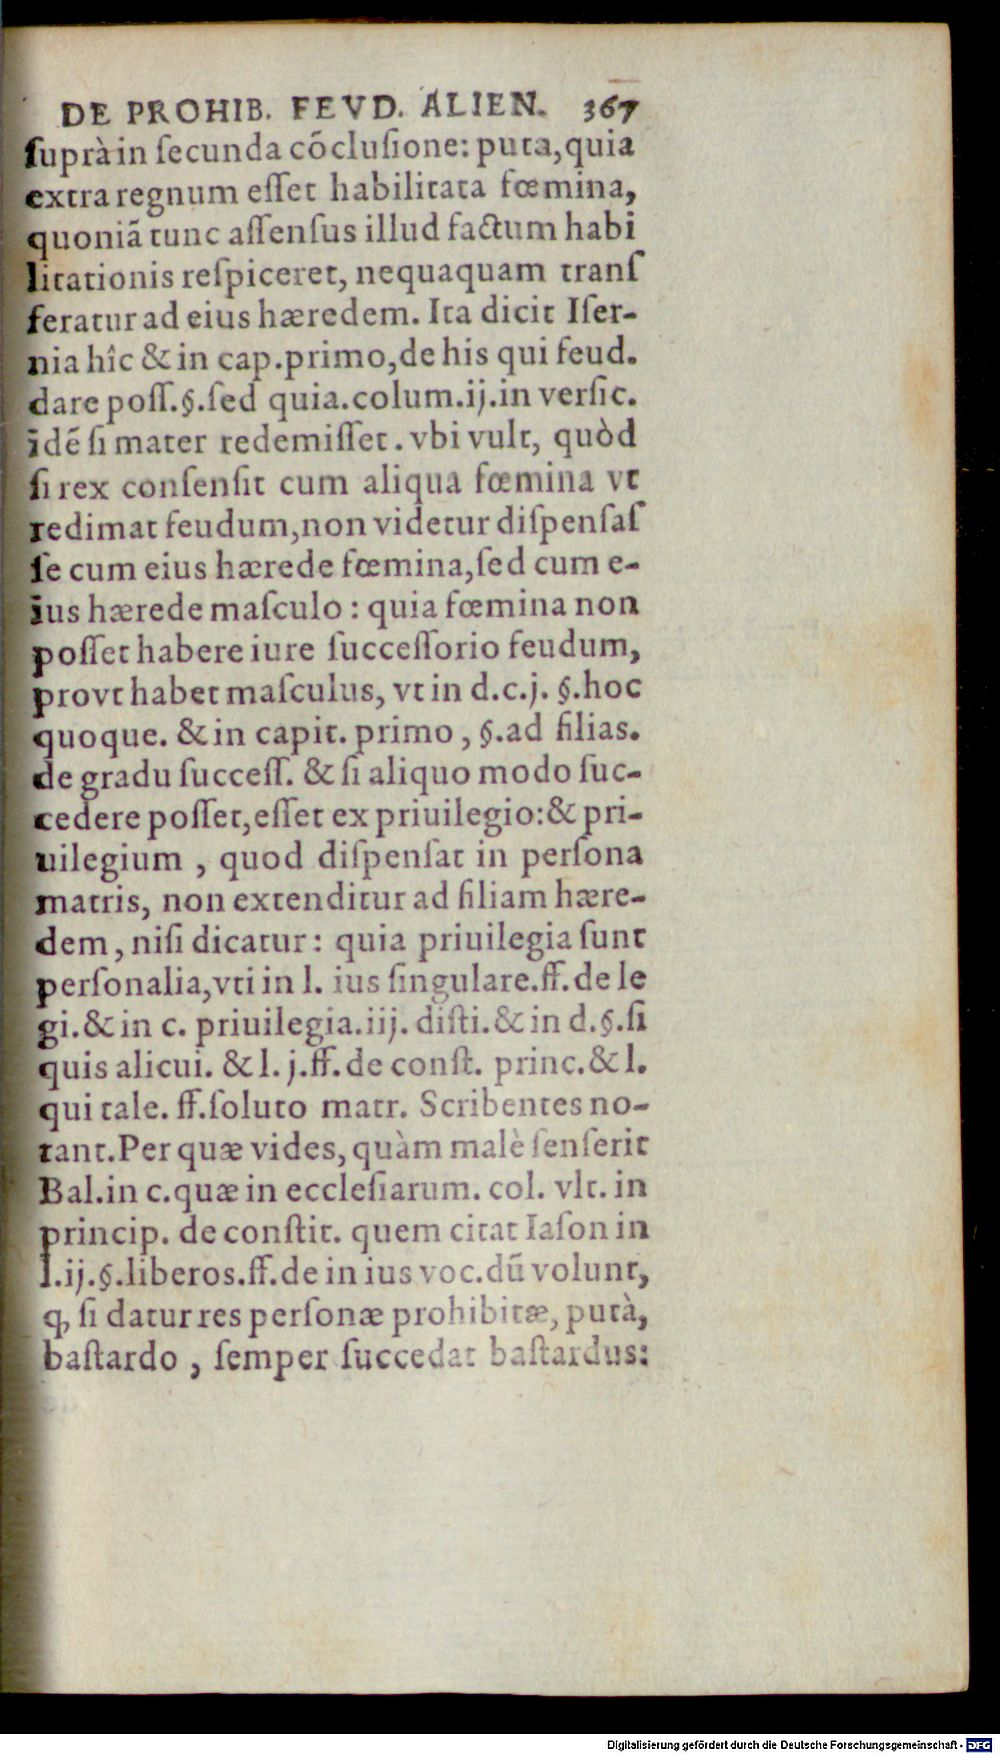 DE PROHIB. FEVD. ALIEN. 367
ſuprà in ſecunda cõcluſione: puta, quia
extra regnum eſſet habilitata fœmina,
quoniã tunc aſſenſus illud factum habi
litationis reſpiceret, nequaquam tranſ
feratur ad eius hæredem. Ita dicit Iſer-
nia hîc & in cap. primo, de his qui feud.
dare poſſ. §. ſed quia. colum. ij. in verſic.
idẽ ſi mater redemiſſet. vbi vult, quòd
ſi rex conſenſit cum aliqua fœmina vt
redimat feudum, non videtur diſpenſaſ
ſe cum eius hærede fœmina, ſed cum e-
ius hærede maſculo: quia fœmina non
poſſet habere iure ſucceſſorio feudum,
provt habet maſculus, vt in d.c.j. §. hoc
quoque. & in capit. primo, §. ad filias.
de gradu ſucceſſ. & ſi aliquo modo ſuc-
cedere poſſet, eſſet ex priuilegio: & pri-
uilegium, quod diſpenſat in perſona
matris, non extenditur ad filiam hære-
dem, niſi dicatur: quia priuilegia ſunt
perſonalia, vti in l. ius ſingulare. ff. de le
gi. & in c. priuilegia. iij. diſti. & in d. §. ſi
quis alicui. & l. j. ff. de conſt. princ. & l.
qui tale. ff. ſoluto matr. Scribentes no-
tant. Per quæ vides, quàm malè ſenſerit
Bal. in c. quæ in eccleſiarum. col. vlt. in
princip. de conſtit. quem citat Iaſon in
l. ij. §. liberos. ff. de in ius voc. dũ volunt,
ꝙ ſi datur res perſonæ prohibitæ, putà,
baſtardo, ſemper ſuccedat baſtardus:
Digitalisierung gefördert durch die Deutsche Forschungsgemeinschaft - DFG